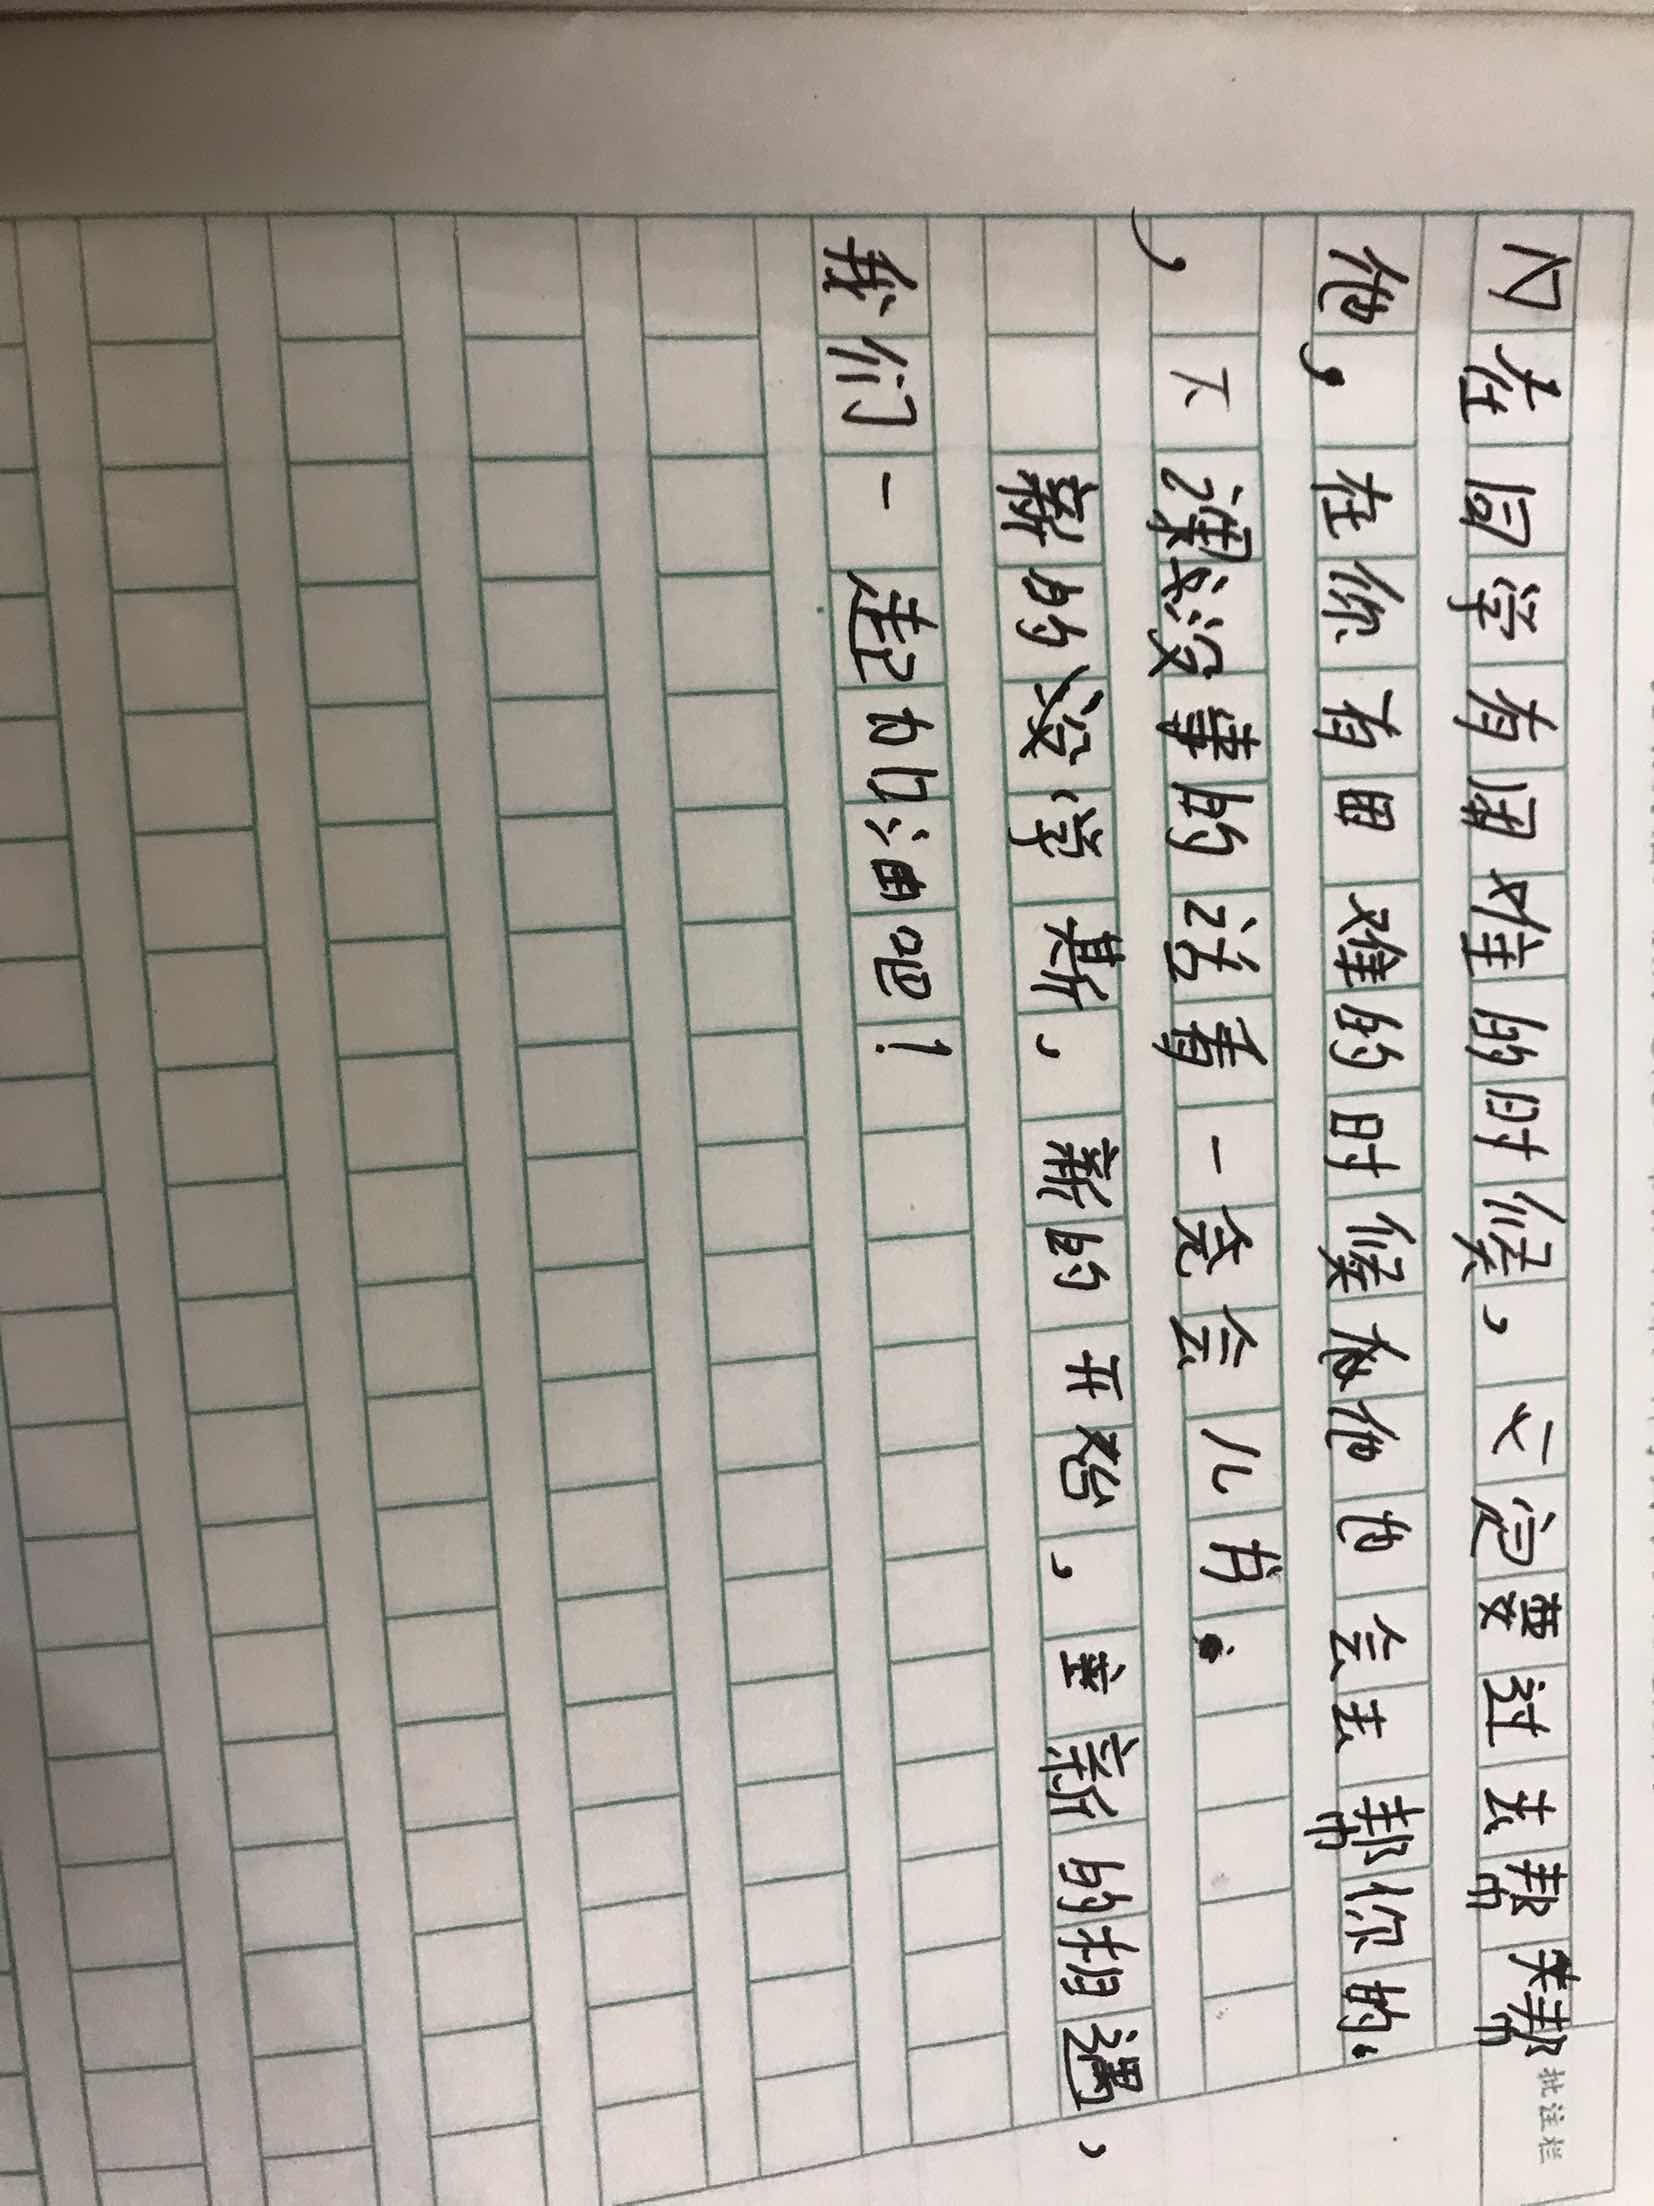 在同学有困难的时候，定要过去帮帮
他，在你有困难的时候他也会去帮你的。
，下课没事的话看一会儿书。
新的学期，新的开始，重新的相遇，
我们一起加油吧！
批注栏